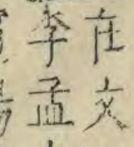 在文
李孟